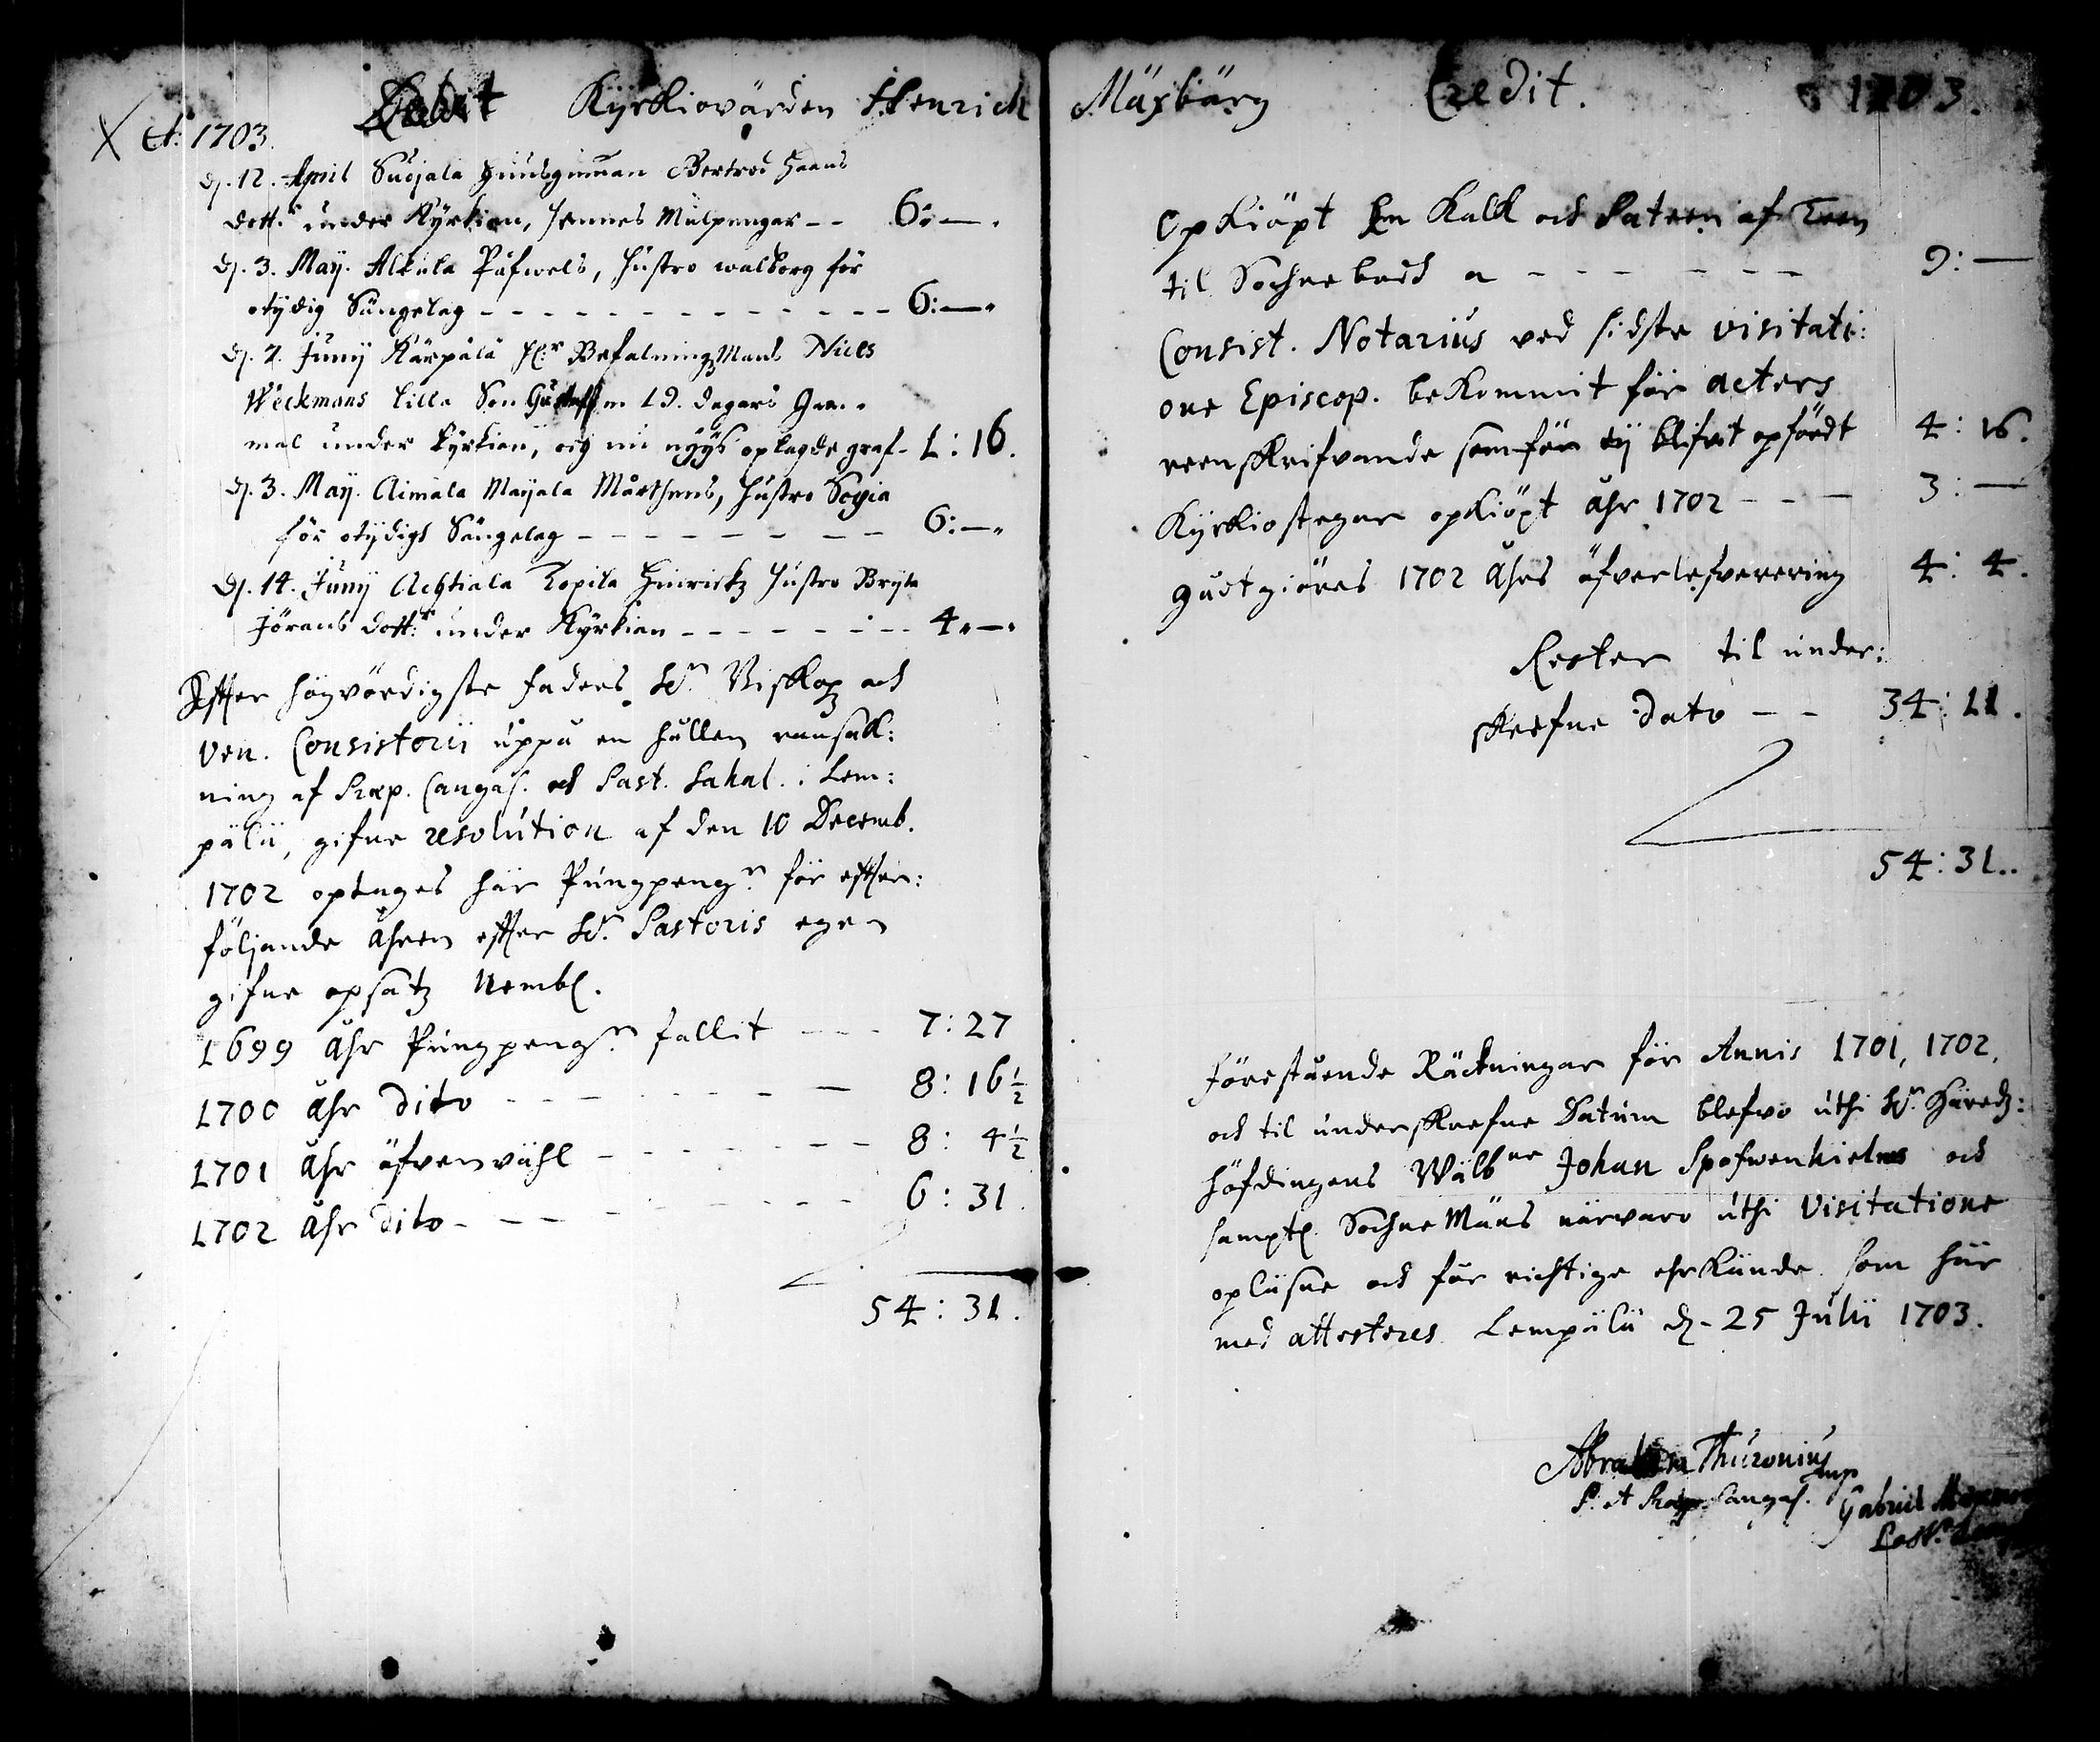 Debet Kyrkiovärden Henrich
A:o 1703.
d. 12. April Sucjala Hendes Bertrod Hans
dott:r under Kyrkian, hennes Mulpengar -- 6:—.
d. 3. May. Alkula Påfwels, hustro walborg för
otydig Sängelag - - - - 6:—.
d. 2. Junij Kärpälä H:r BefalningzMans Niels
Weckmans lilla Son Gustaff m 19. dagars Gam-
mal under kyrkian, och nu nyys oplagde graf - 1: 16.
d. 3. May. Aimala Maijala Mårthens, hustro Sogia
för otydigt Sängelag - - - - 6:—.
d. 14. Junij Achtiala Topila Hinrickz hustro Bryta
Jörans dott:r under Kyrkian - - - - 4.—.
Effter högvördigste fadrens H:r Biskop och
Ven. Consistorii uppå en hållen ransak:
ning af Præp. Cangas. och Past. Sahal. i Lem:
pälä, gifne resolution af den 10 Decemb.
1702 optages här Pungpeng:r för effter:
följande åhren effter H:r Pastoris egen
gifne opsatz Nembl.
1699 åhr Pungpeng:r fallit - - - 7: 27
1700 åhr dito - - - - 8: 16½
1701 åhr äfvenwähl - - - - 8: 4½
1702 åhr dito - - - - 6: 31.
54: 31.
Mäxbärg Credit. 1703.
Opkiöpt En Kalk och Pateen af Teen
til Sochnebudh a - - - - 9: —
Consist. Notarius ved sidste visitati:
one Episcop. bekommit för acters
reenskrifvande som för ey blifvit opfördt 4: 16.
Kyrkiostegar opkiöpt åhr 1702 - - - 3: —
gudtgiöres 1702 åhrs öfverlefverering 4: 4.
Rester til under:
skrefne dato - - 34: 11.
54: 31..
Förestående Räckningar för Annis 1701, 1702,
och til underskrefne Datum blefvo uthi H:r Häredz:
höfdingens Wälb:ne Johan Spofwenhielms och
sampt. SochneMäns närvaro uthi Visitatione
opläsne och för richtige ehrkände. som här
med attesteres Lempälä d. 25 Julii 1703.
Abraham Thuronius
mp
P. et Præp. Cangas.
Gabriel
Past:r